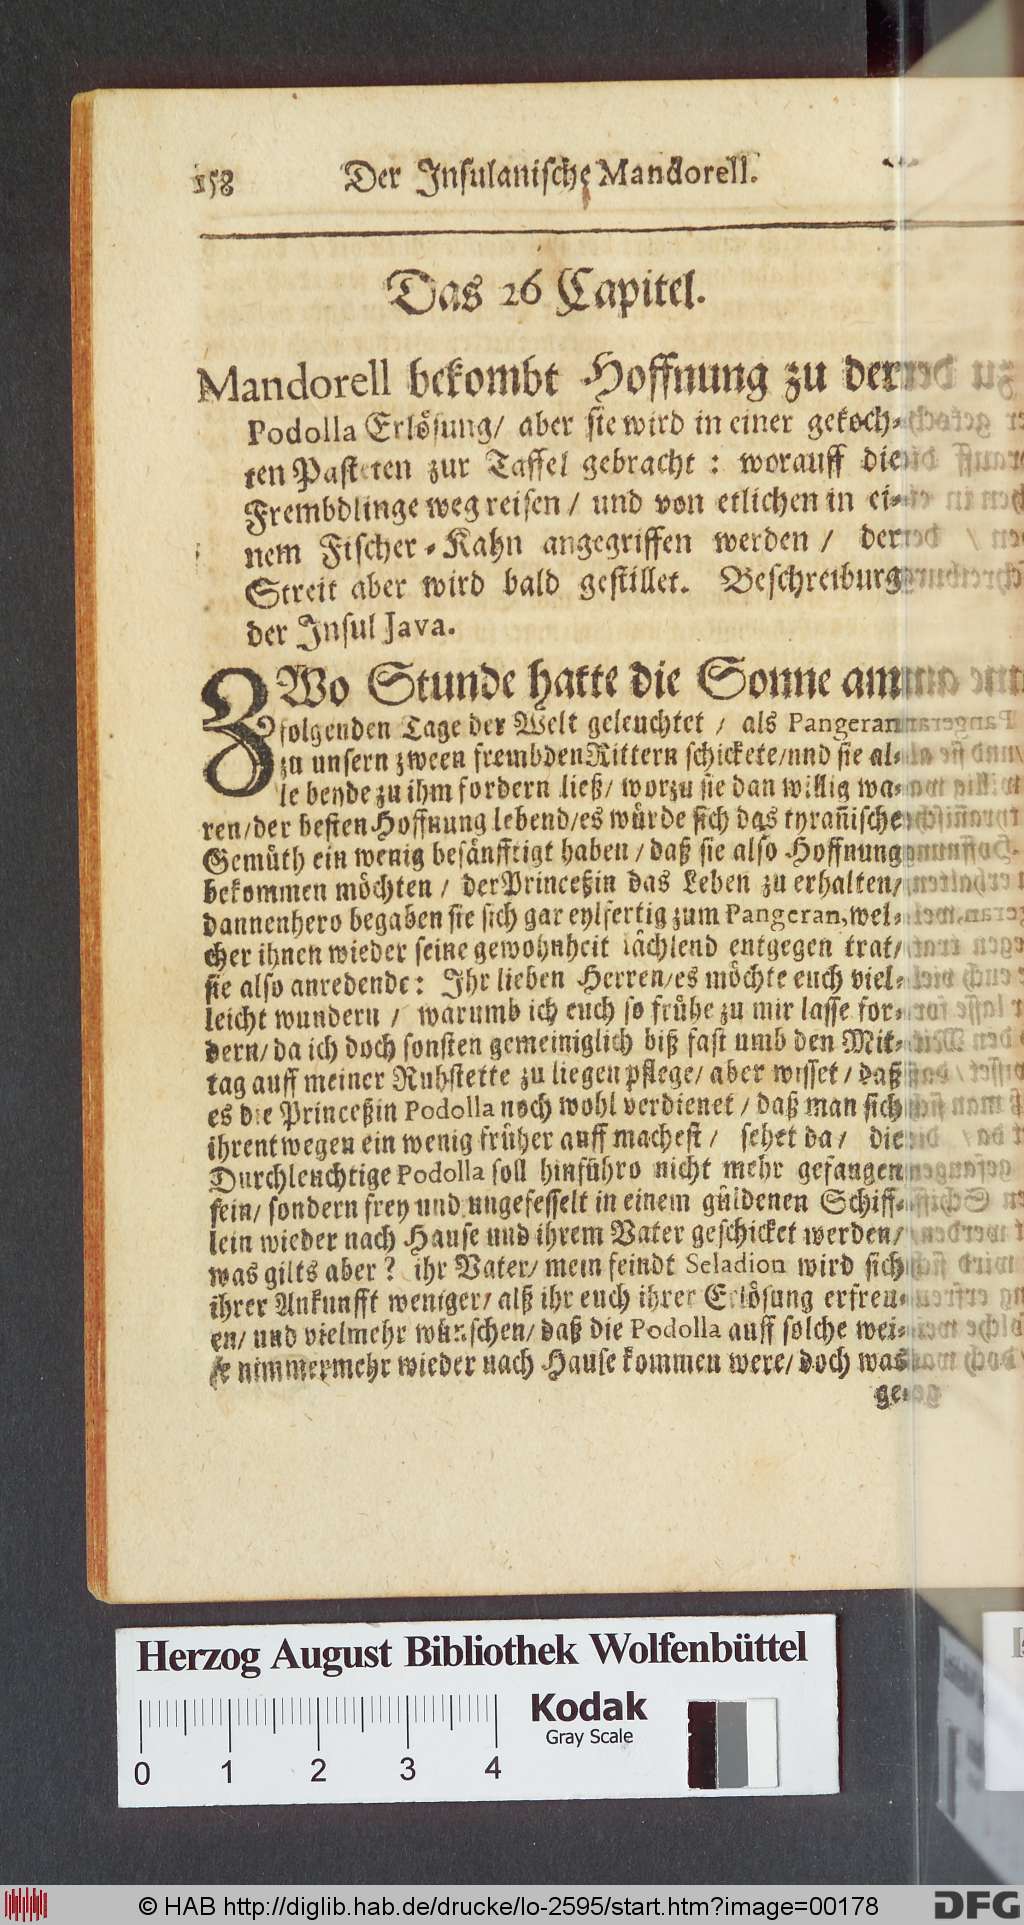 158 Der Insulanische Mandorell.
Das 26 Capitel.
Mandorell bekombt Hoffnung zu der
Podolla Erlösung/ aber sie wird in einer gekoch-
ten Pasteten zur Taffel gebracht: worauff die
Frembdlinge weg reisen/ und von etlichen in ei-
nem Fischer-Kahn angegriffen werden/ der
Streit aber wird bald gestillet. Beschreiburg
der Insul Java.
ZWo Stunde hatte die Sonne am
folgenden Tage der Welt geleuchtet/ als Pangeran
zu unsern zween frembden Rittern schickete/nnd sie al-
le beyde zu ihm fordern ließ/ worzu sie dan willig wa-
ren/der besten Hoffnung lebend/es würde sich das tyrañische
Gemüth ein wenig besänfftigt haben/daß sie also Hoffnung
bekommen möchten/ der Princeßin das Leben zu erhalten/
dannenhero begaben sie sich gar eylfertig zum Pangeran, wel-
cher ihnen wieder seine gewohnheit lächlend entgegen trat/
sie also anredende: Ihr lieben Herren/es möchte euch viel-
leicht wundern/ warumb ich euch so frühe zu mir lasse for-
dern/da ich doch sonsten gemeiniglich biß fast umb den Mit-
tag auff meiner Ruhstette zu liegen pflege/ aber wisset/daß
es die Princeßin Podolla noch wohl verdienet/daß man sich
ihrentwegen ein wenig früher auff machest/ sehet da/ die
Durchleuchtige Podolla soll hinführo nicht mehr gefangen
sein/ sondern frey und ungefesselt in einem güldenen Schiff-
lein wieder nach Hause und ihrem Vater geschicket werden/
was gilts aber? ihr Vater/ mein feindt Seladion wird sich
ihrer Ankunfft weniger/ alß ihr euch ihrer Erlösung erfreu-
en/ und vielmehr wünschen/daß die Podolla auff solche wei-
se nimmermehr wieder nach Hause kommen were/doch was
ge-
Herzog August Bibliothek Wolfenbüttel
Kodak
Gray Scale
0 1 2 3 4
© HAB http://diglib.hab.de/drucke/lo-2595/start.htm?image=00178
DFG